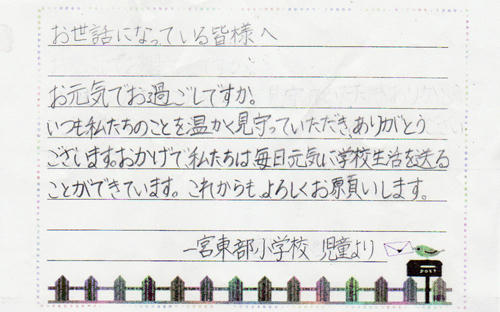 お世話になっている皆様へ
お元気でお過ごしですか。
いつも私たちのことを温かく見守っていただき、ありがとう
ございます。おかげで私たちは毎日元気に学校生活を送る
ことができています。これからも、よろしくお願いします。
一宮東部小学校 児童より
POST